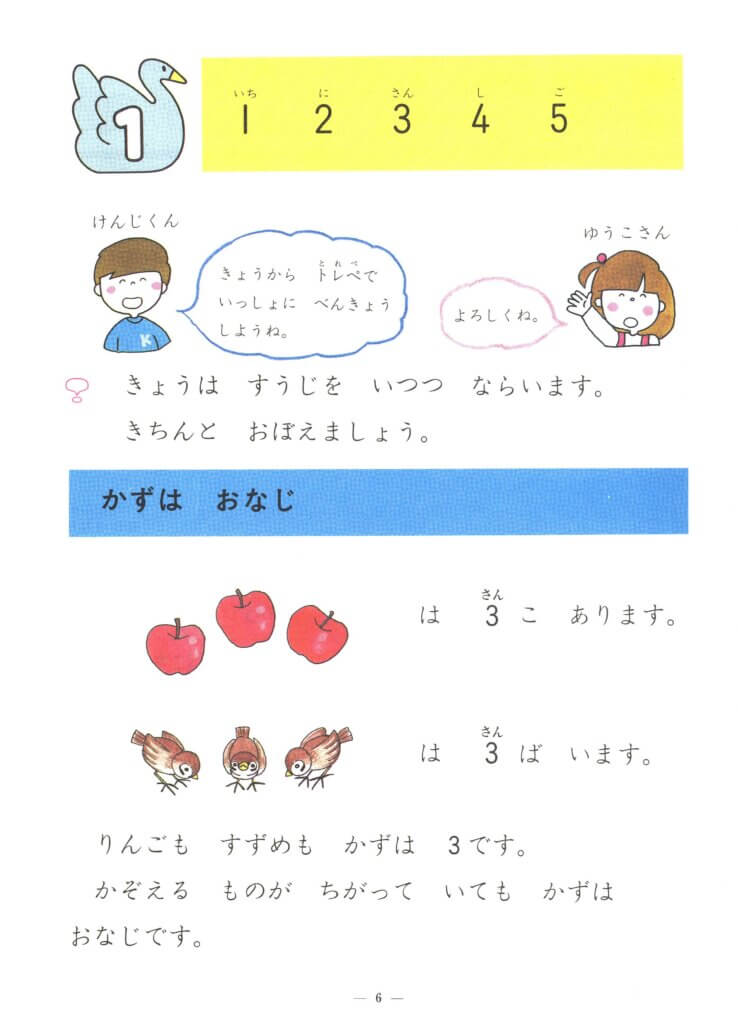 1
いち に さん し ご
1 2 3 4 5
けんじくん
とれぺ
きょうから トレペで
いっしょに べんきょう
しようね。
K
ゆうこさん
よろしくね。
きょうは すうじを いつつ ならいます。
きちんと おぼえましょう。
かずは おなじ
さん
は 3こ あります。
さん
は 3ば います。
りんごも すずめも かずは 3です。
かぞえる ものが ちがって いても かずは
おなじです。
— 6 —